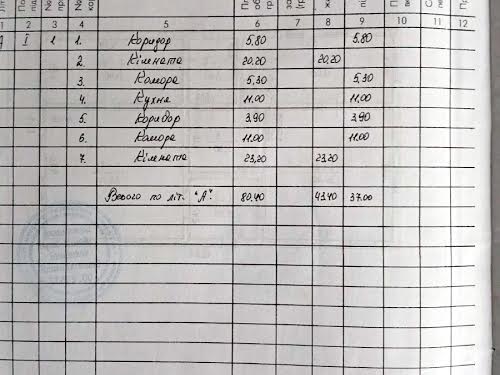 1 2 3 4 5 6 7 8 9 10 11 12
I 1 1. Коридор 5,80 5.80
2. Кімната 20,20 20,20
3. Комора 5,30 5.30
4. Кухня 11.00 11.00
5. Коридор 3,90 3,90
6. Комора 11.00 11.00
7. Кімната 23,20 23,20
Всього по літ. "А": 80.40 43.40 37.00